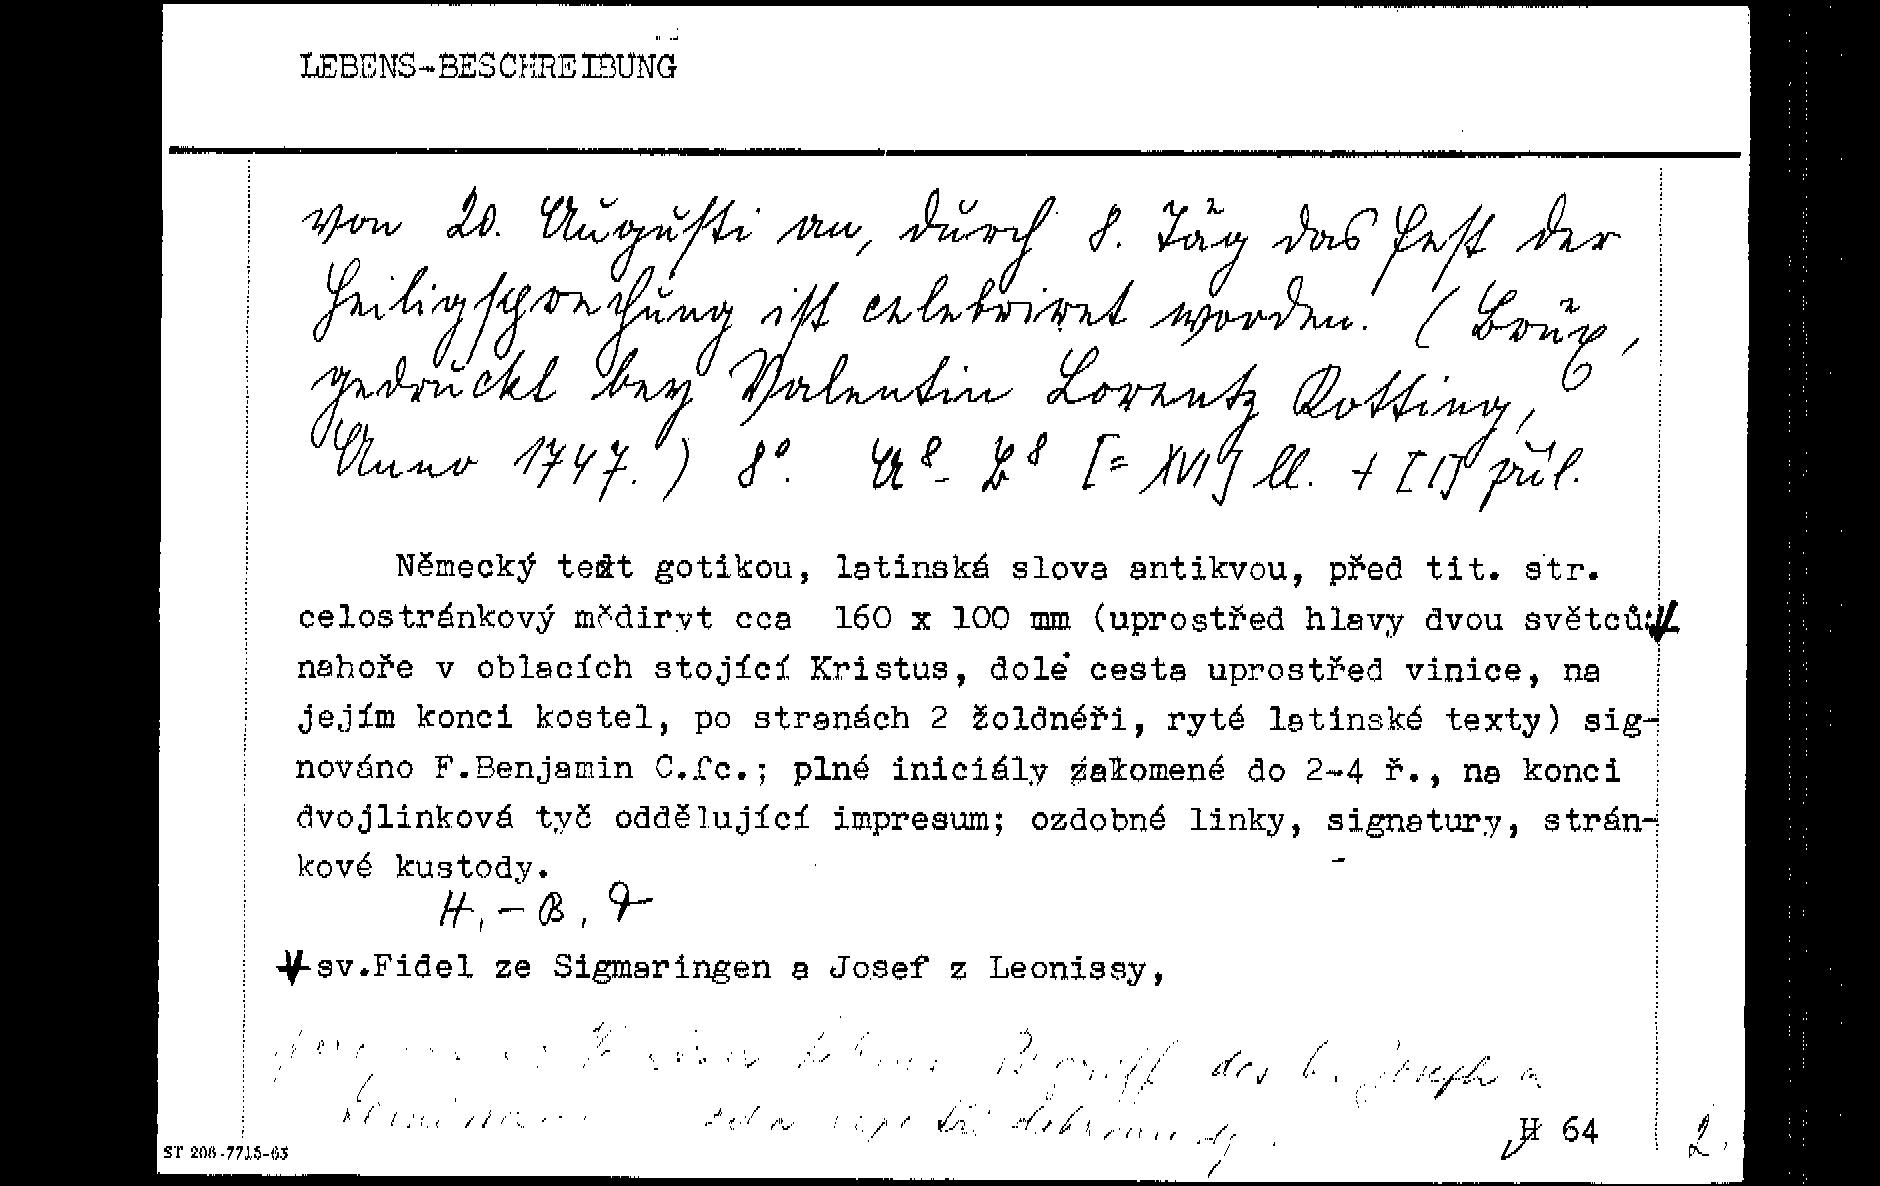 LEBENS-BESCHREIBUNG
von 20. Augusti an, durch 8. Täg das Fest der
Heiligsprechung ist celebriret worden. (Brüx,
gedruckt bey Valentin Lorentz Kotting,
Anno 1747.) 8°. A⁸-B⁸ [= XVI] ll. + [I] příl.
Německý text gotikou, latinská slova antikvou, před tit. str.
celostránkový mědiryt cca 160 x 100 mm (uprostřed hlavy dvou světců:
nahoře v oblacích stojící Kristus, dole cesta uprostřed vinice, na
jejím konci kostel, po stranách 2 žoldnéři, ryté latinské texty) sig-
nováno F.Benjamin C.fc.; plné iniciály zalomené do 2-4 ř., na konci
dvojlinková tyč oddělující impresum; ozdobné linky, signatury, strán-
kové kustody.
H, - B,
sv.Fidel ze Sigmaringen a Josef z Leonissy,
Begriff des h. Joseph a
H 64
2.
ST 208-7715-63